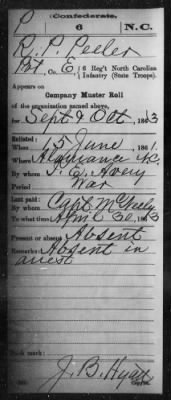 P
(Confederate.)
6
N.C.
R. P. Peeler
Pvt, Co. E, 6 Reg't North Carolina
Infantry (State Troops).
Appears on
Company Muster Roll
of the organization named above,
for Sept & Oct, 1863
Enlisted:
When 15 June, 1861.
Where Alamance N.C.
By whom I. E. Avery
Period War
Last paid:
By whom Capt McNeely
To what time April 30, 1863
Present or absent Absent
Remarks: Absent in
arrest
Book mark:
J. B. Hyatt
Copyist.